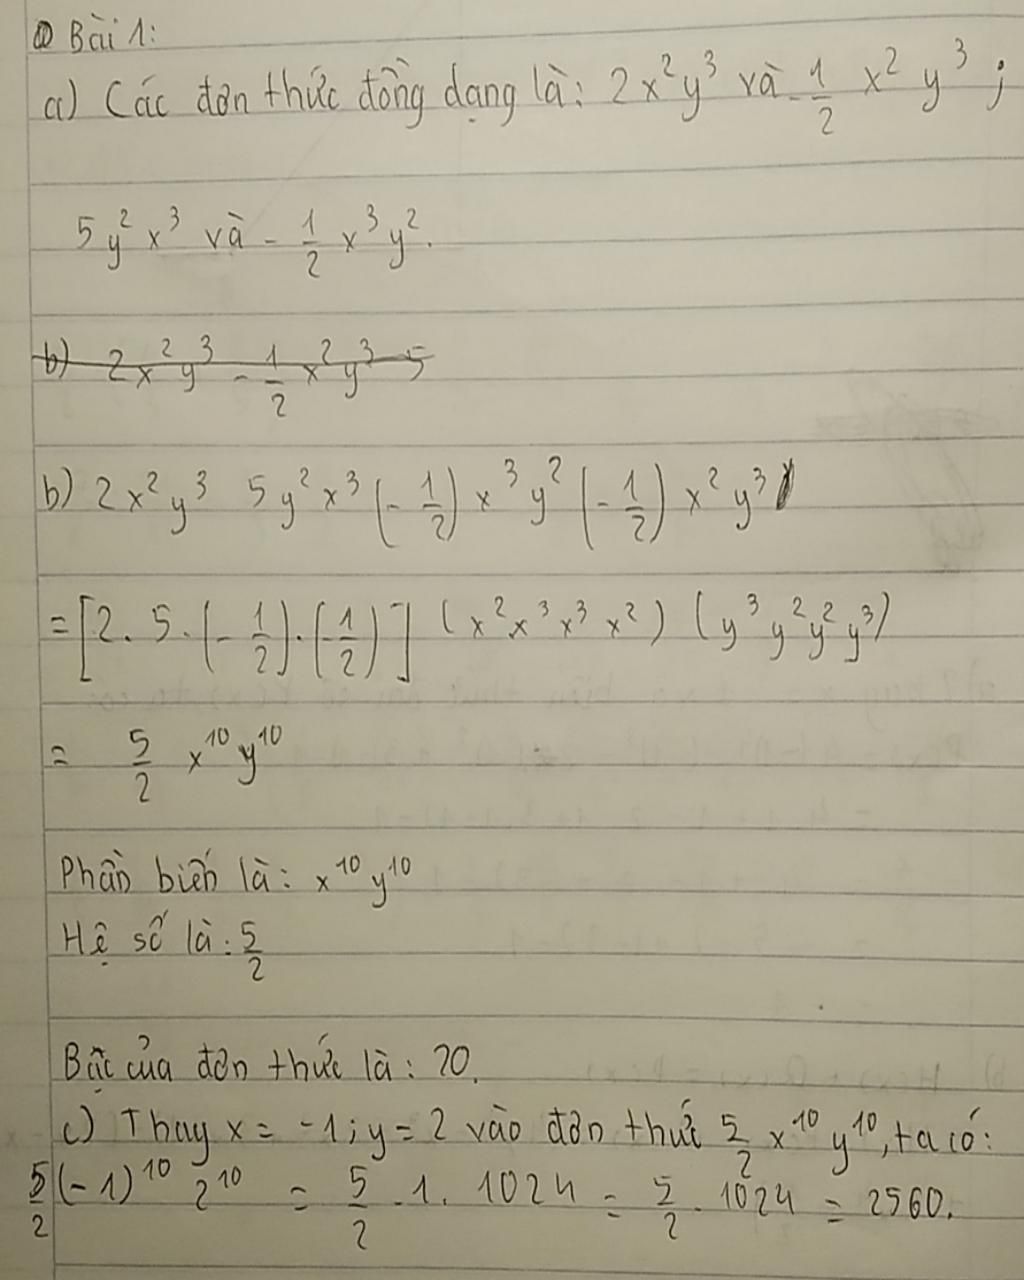 Bài 1:
a) Các đơn thức đồng dạng là: 2x²y³ và -1/2 x² y³ ;
5y² x³ và - 1/2 x³ y².
b) 2x² y³ - 1/2 x² y³ 5
b) 2x² y³ 5y² x³ (- 1/2) x³ y² (- 1/2) x² y³
= [2. 5. (- 1/2). (-1/2)] (x². x³ x³ x²) (y³ y² y² y³)
= 5/2 x¹⁰ y¹⁰
Phần biến là: x¹⁰ y¹⁰
Hệ số là: 5/2
Bậc của đơn thức là: 20.
c) Thay x = -1; y = 2 vào đơn thức 5/2 x¹⁰ y¹⁰, ta có:
5/2 (-1)¹⁰ 2¹⁰ = 5/2 . 1. 1024 = 5/2 . 1024 = 2560.